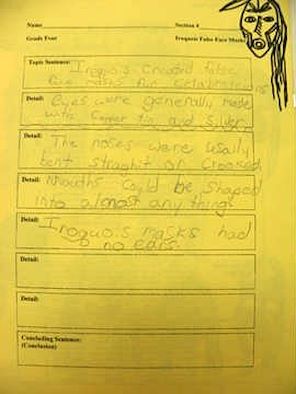 Name Section #
Grade Four Iroquois False Face Masks
Topic Sentence: Iroquois created false
face masks for celabrations
Detail: Eyes were generally made
with Copper tin and silver.
Detail: The noses were usally
bent straghit or Crooked
Detail: Mouths could be shaped
into almost any thing
Detail: Iroquois masks had
no ears.
Detail:
Detail:
Concluding Sentence:
(Conclusion)